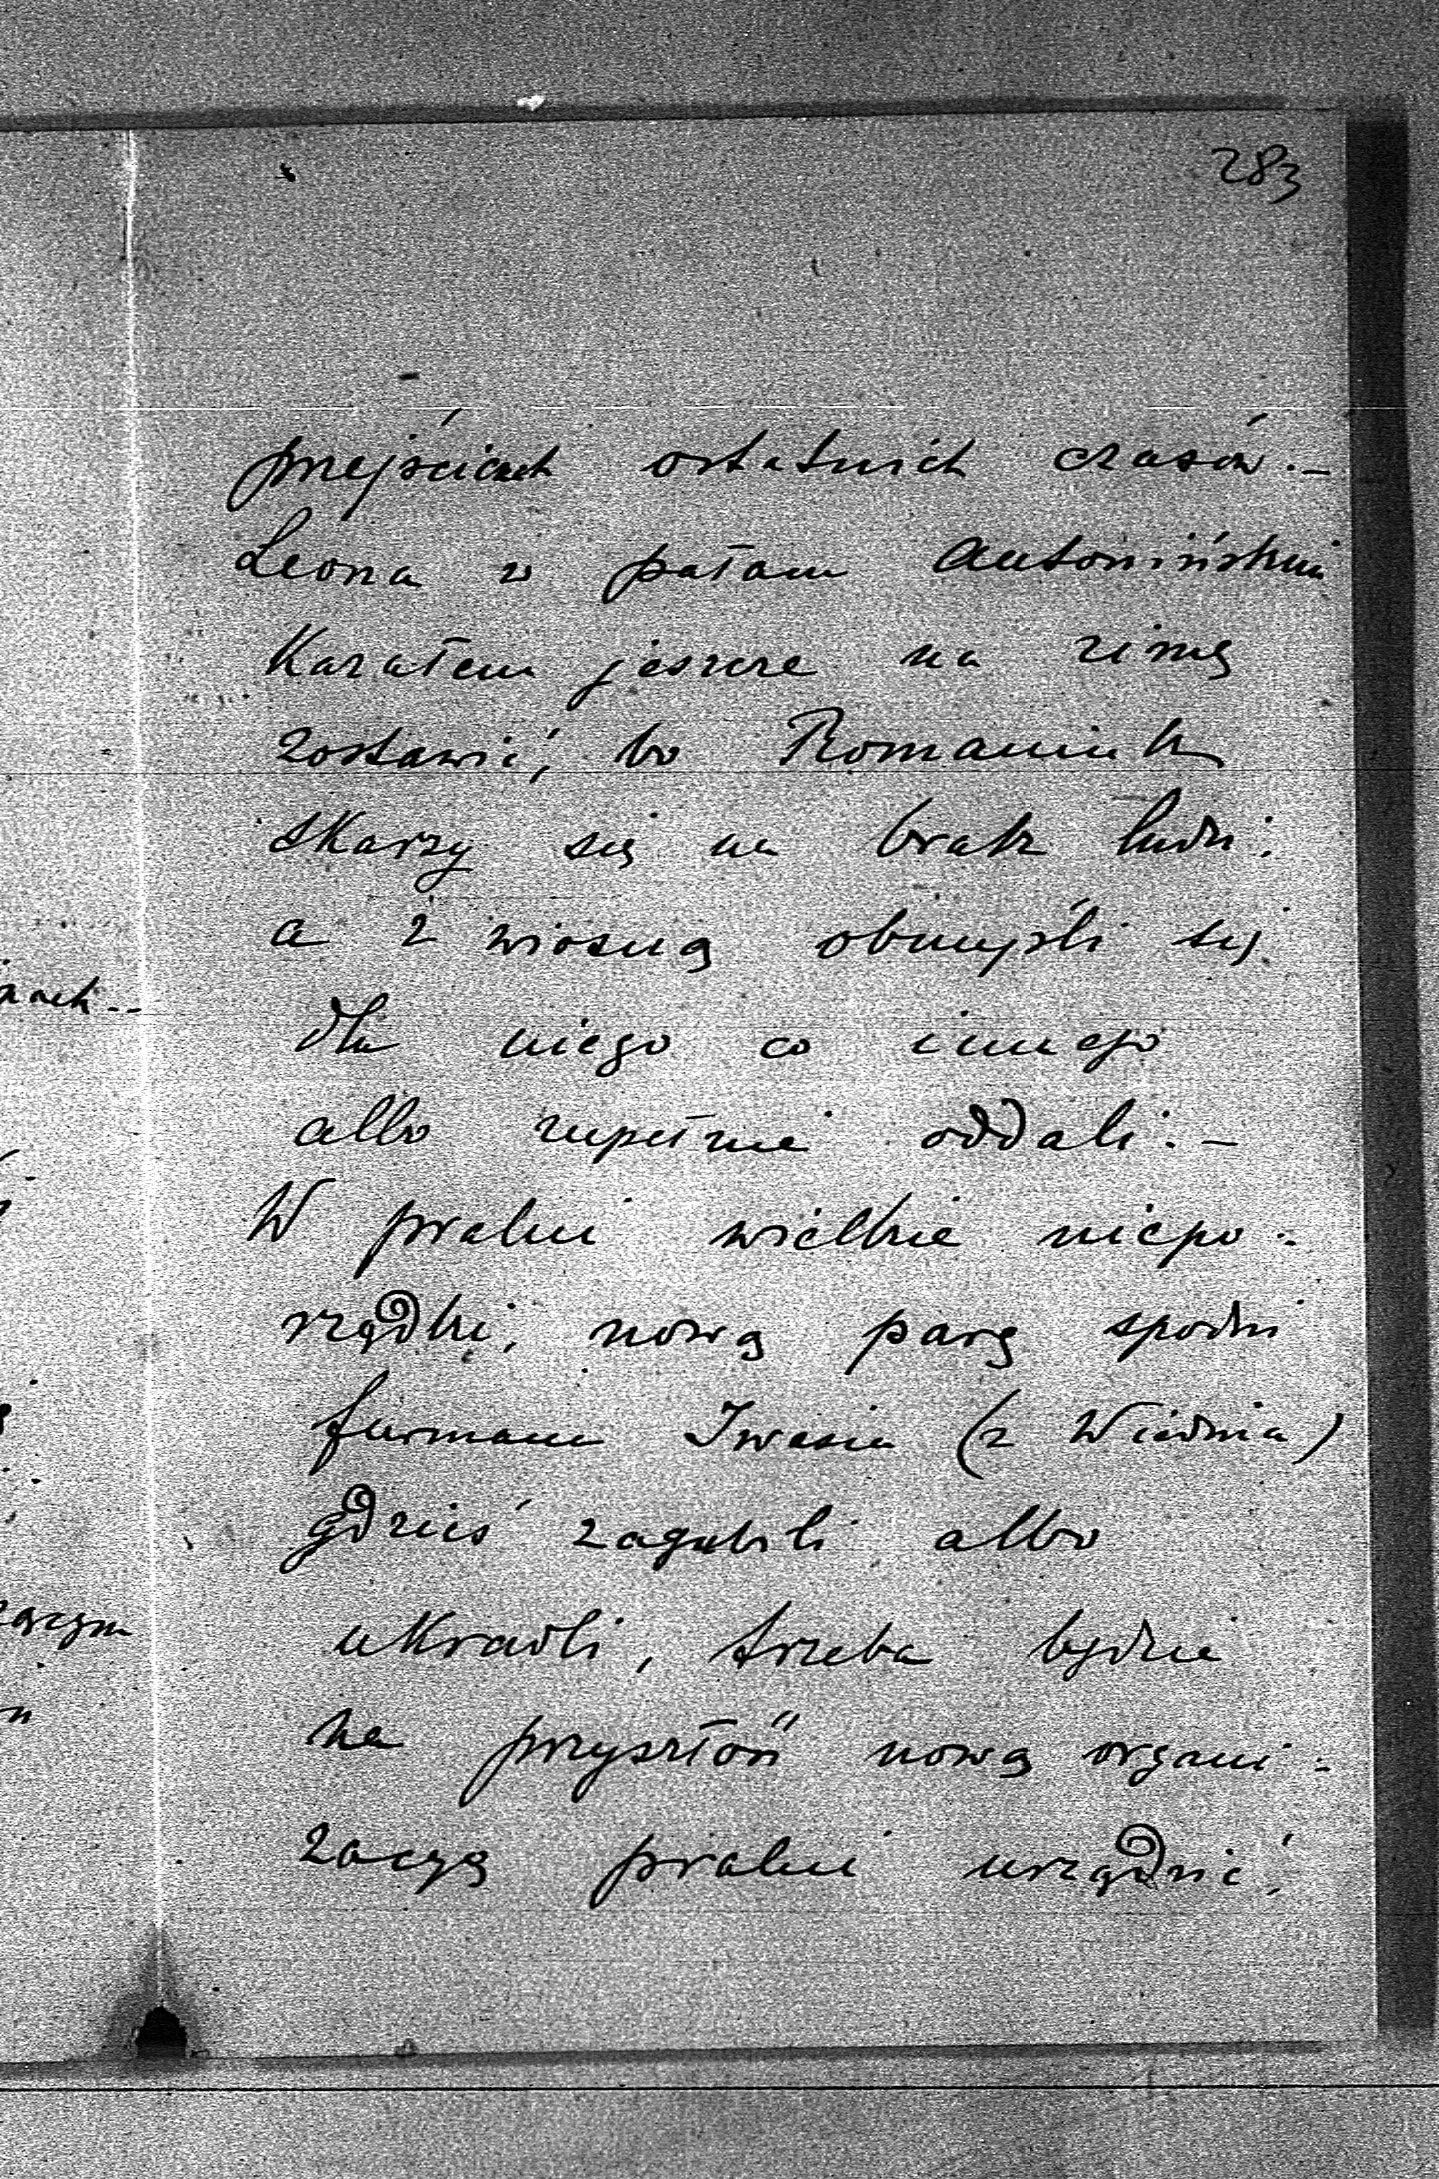 283
przejściach ostatnich czasów.–
Leona w pałacu Antonińskim
Kazałem jeszcze na zimę
zostawić, bo Romaniuk
skarzy się na brak ludzi.
a z wiosną obmyśli się
dla niego co innego
albo zupełnie oddali.–
W pralni wielkie niepo-
rządki, nową parę spodni
furmani Iwasia (z Wiednia)
gdzieś zagubili albo
ukradli, trzeba będzie
na przyszłość nową organi-
zacyę pralni urządzić,